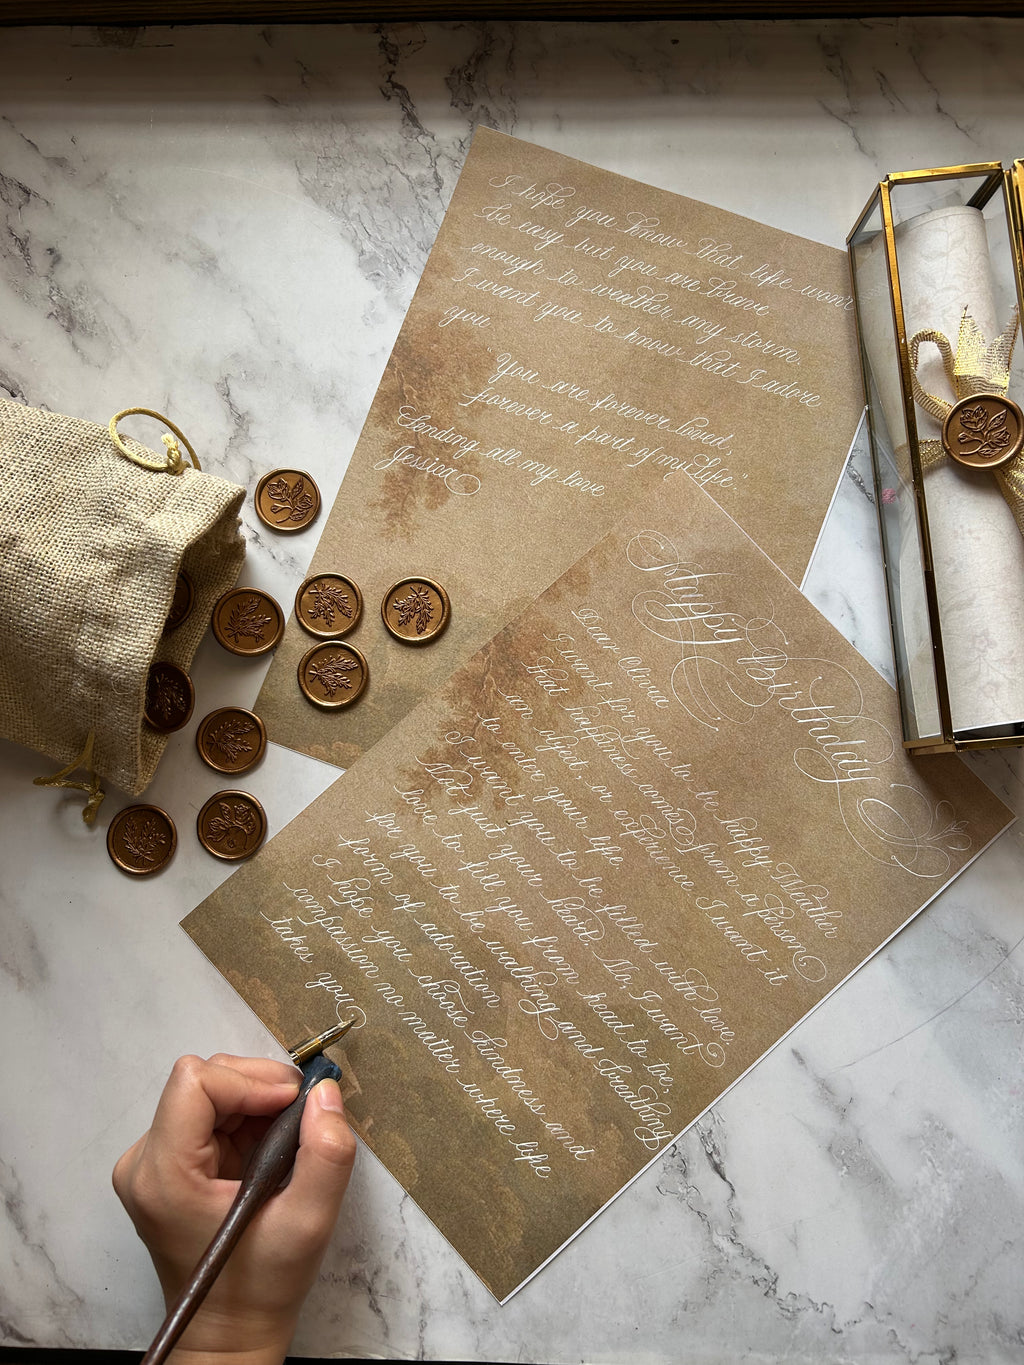 Happy Birthday
Dear Olivia
I want for you to be happy Whether
that happiness comes from a person,
an object, or experience I want it
to enter your life
I want you to be filled with love
Not just your heart. No, I want
love to fill you from head to toe,
for you to be walking and breathing
form of adoration
I hope you choose kindness and
compassion no matter where life
takes you
I hope you know that life won't
be easy but you are brave
enough to weather any storm
I want you to know that I adore
you
You are forever loved,
forever a part of my life."
Sending all my love
Jessica